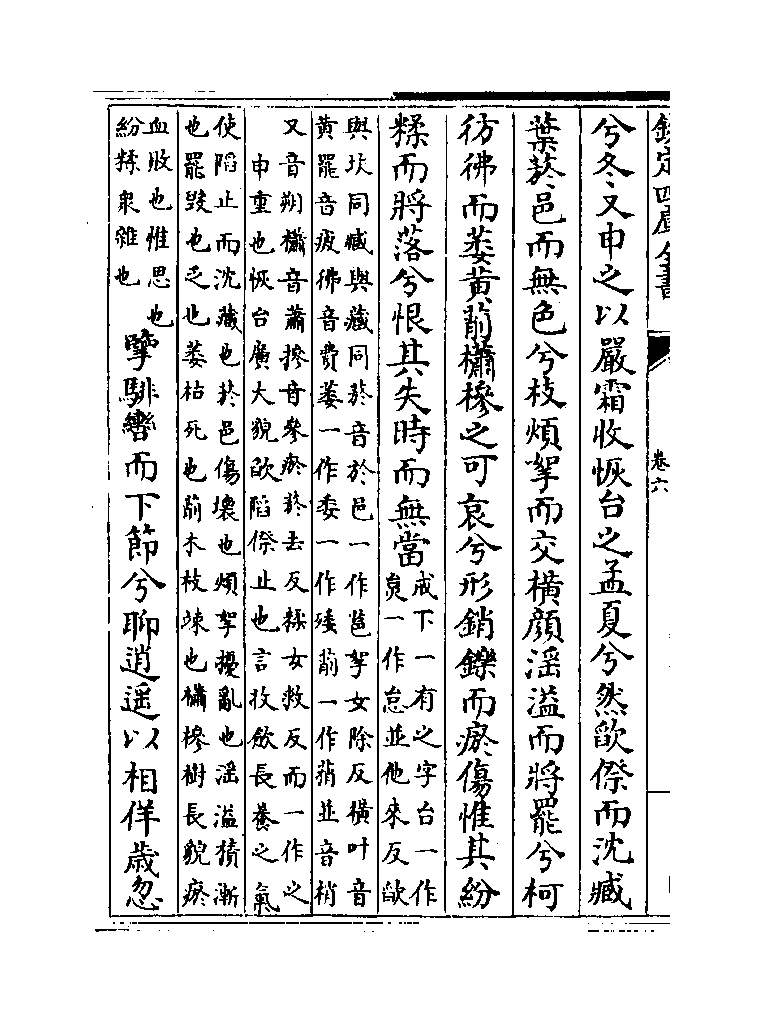 欽定四庫全書
卷六
兮冬又申之以嚴霜收恢台之孟夏兮然欿傺而沈臧
葉菸邑而無色兮枝煩挐而交橫顔滛溢而將罷兮柯
彷彿而萎黄萷櫹槮之可哀兮形銷鑠而瘀傷惟其紛
糅而將落兮恨其失時而無當
戒下一有之字台一作
炱一作怠並他來反欿
與坎同臧與藏同菸音於邑一作䓃挐女除反横叶音
黄罷音疲彿音費萎一作委一作矮萷一作䈰並音梢
又音朔櫹音蕭槮音參瘀菸去反糅女救反而一作之
申重也恢台廣大貌欿陷傺止也言收歛長養之氣
使陷止而沈藏也菸邑傷壊也煩挐擾亂也滛溢積漸
也罷毀也乏也萎枯死也萷木枝竦也櫹槮樹長貌瘀
血敗也惟思也
紛糅衆雜也
擥騑轡而下節兮聊逍遥以相佯歲忽